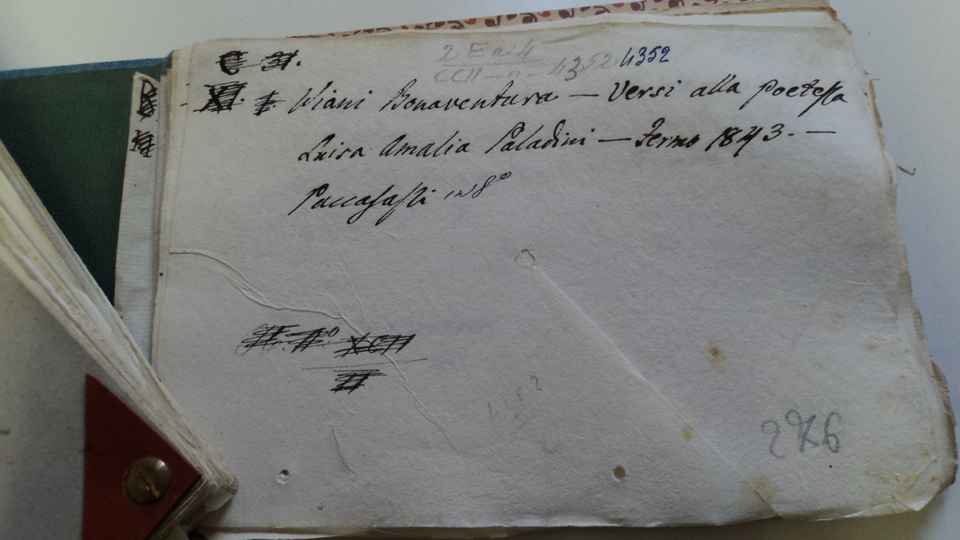 C 31.
2 E a. 4
CCII - n - 4352 4352
XI. I Viani Bonaventura — Versi alla Poetessa
Luisa Amalia Paladini — Fermo 1843. —
Paccasassi in 8º
XCII
II
276